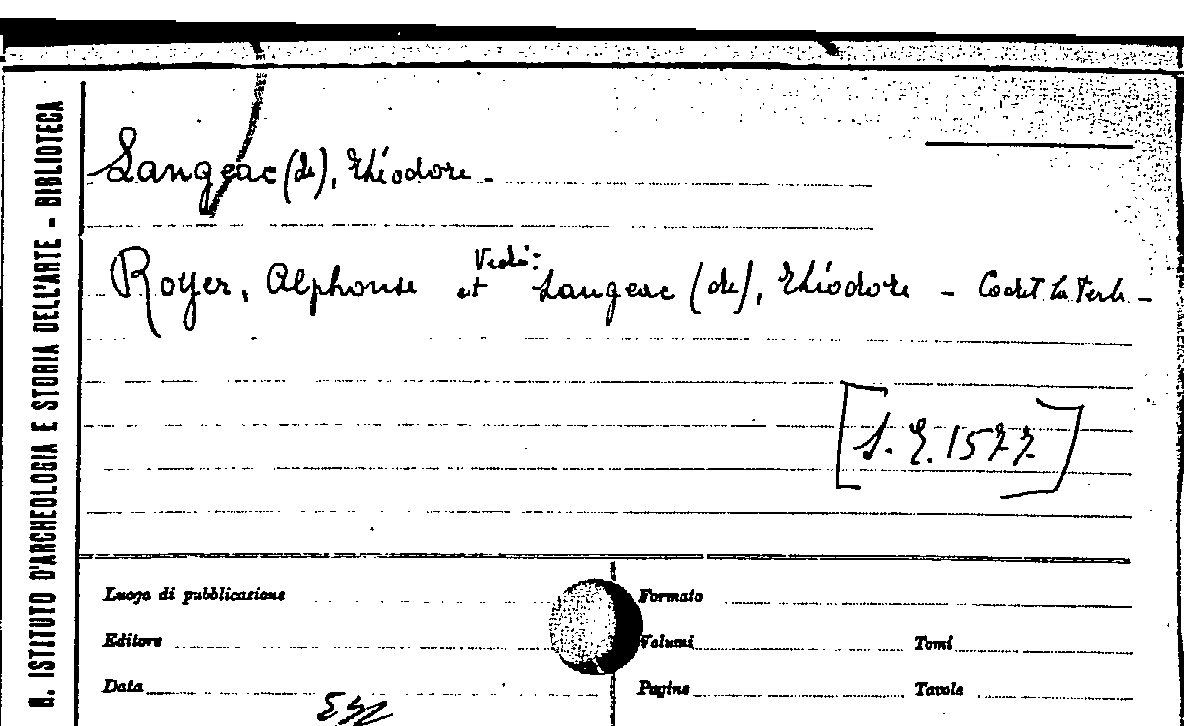 R. ISTITUTO D'ARCHEOLOGIA E STORIA DELL'ARTE - BIBLIOTECA
Langeac (de), Théodore -
Vedi:
Royer, Alphonse et Langeac (de), Théodore - Cadet la Perle -
[S. E. 1577]
Luogo di pubblicazione
Formato
Editore
Volumi
Tomi
Data
Pagine
Tavole